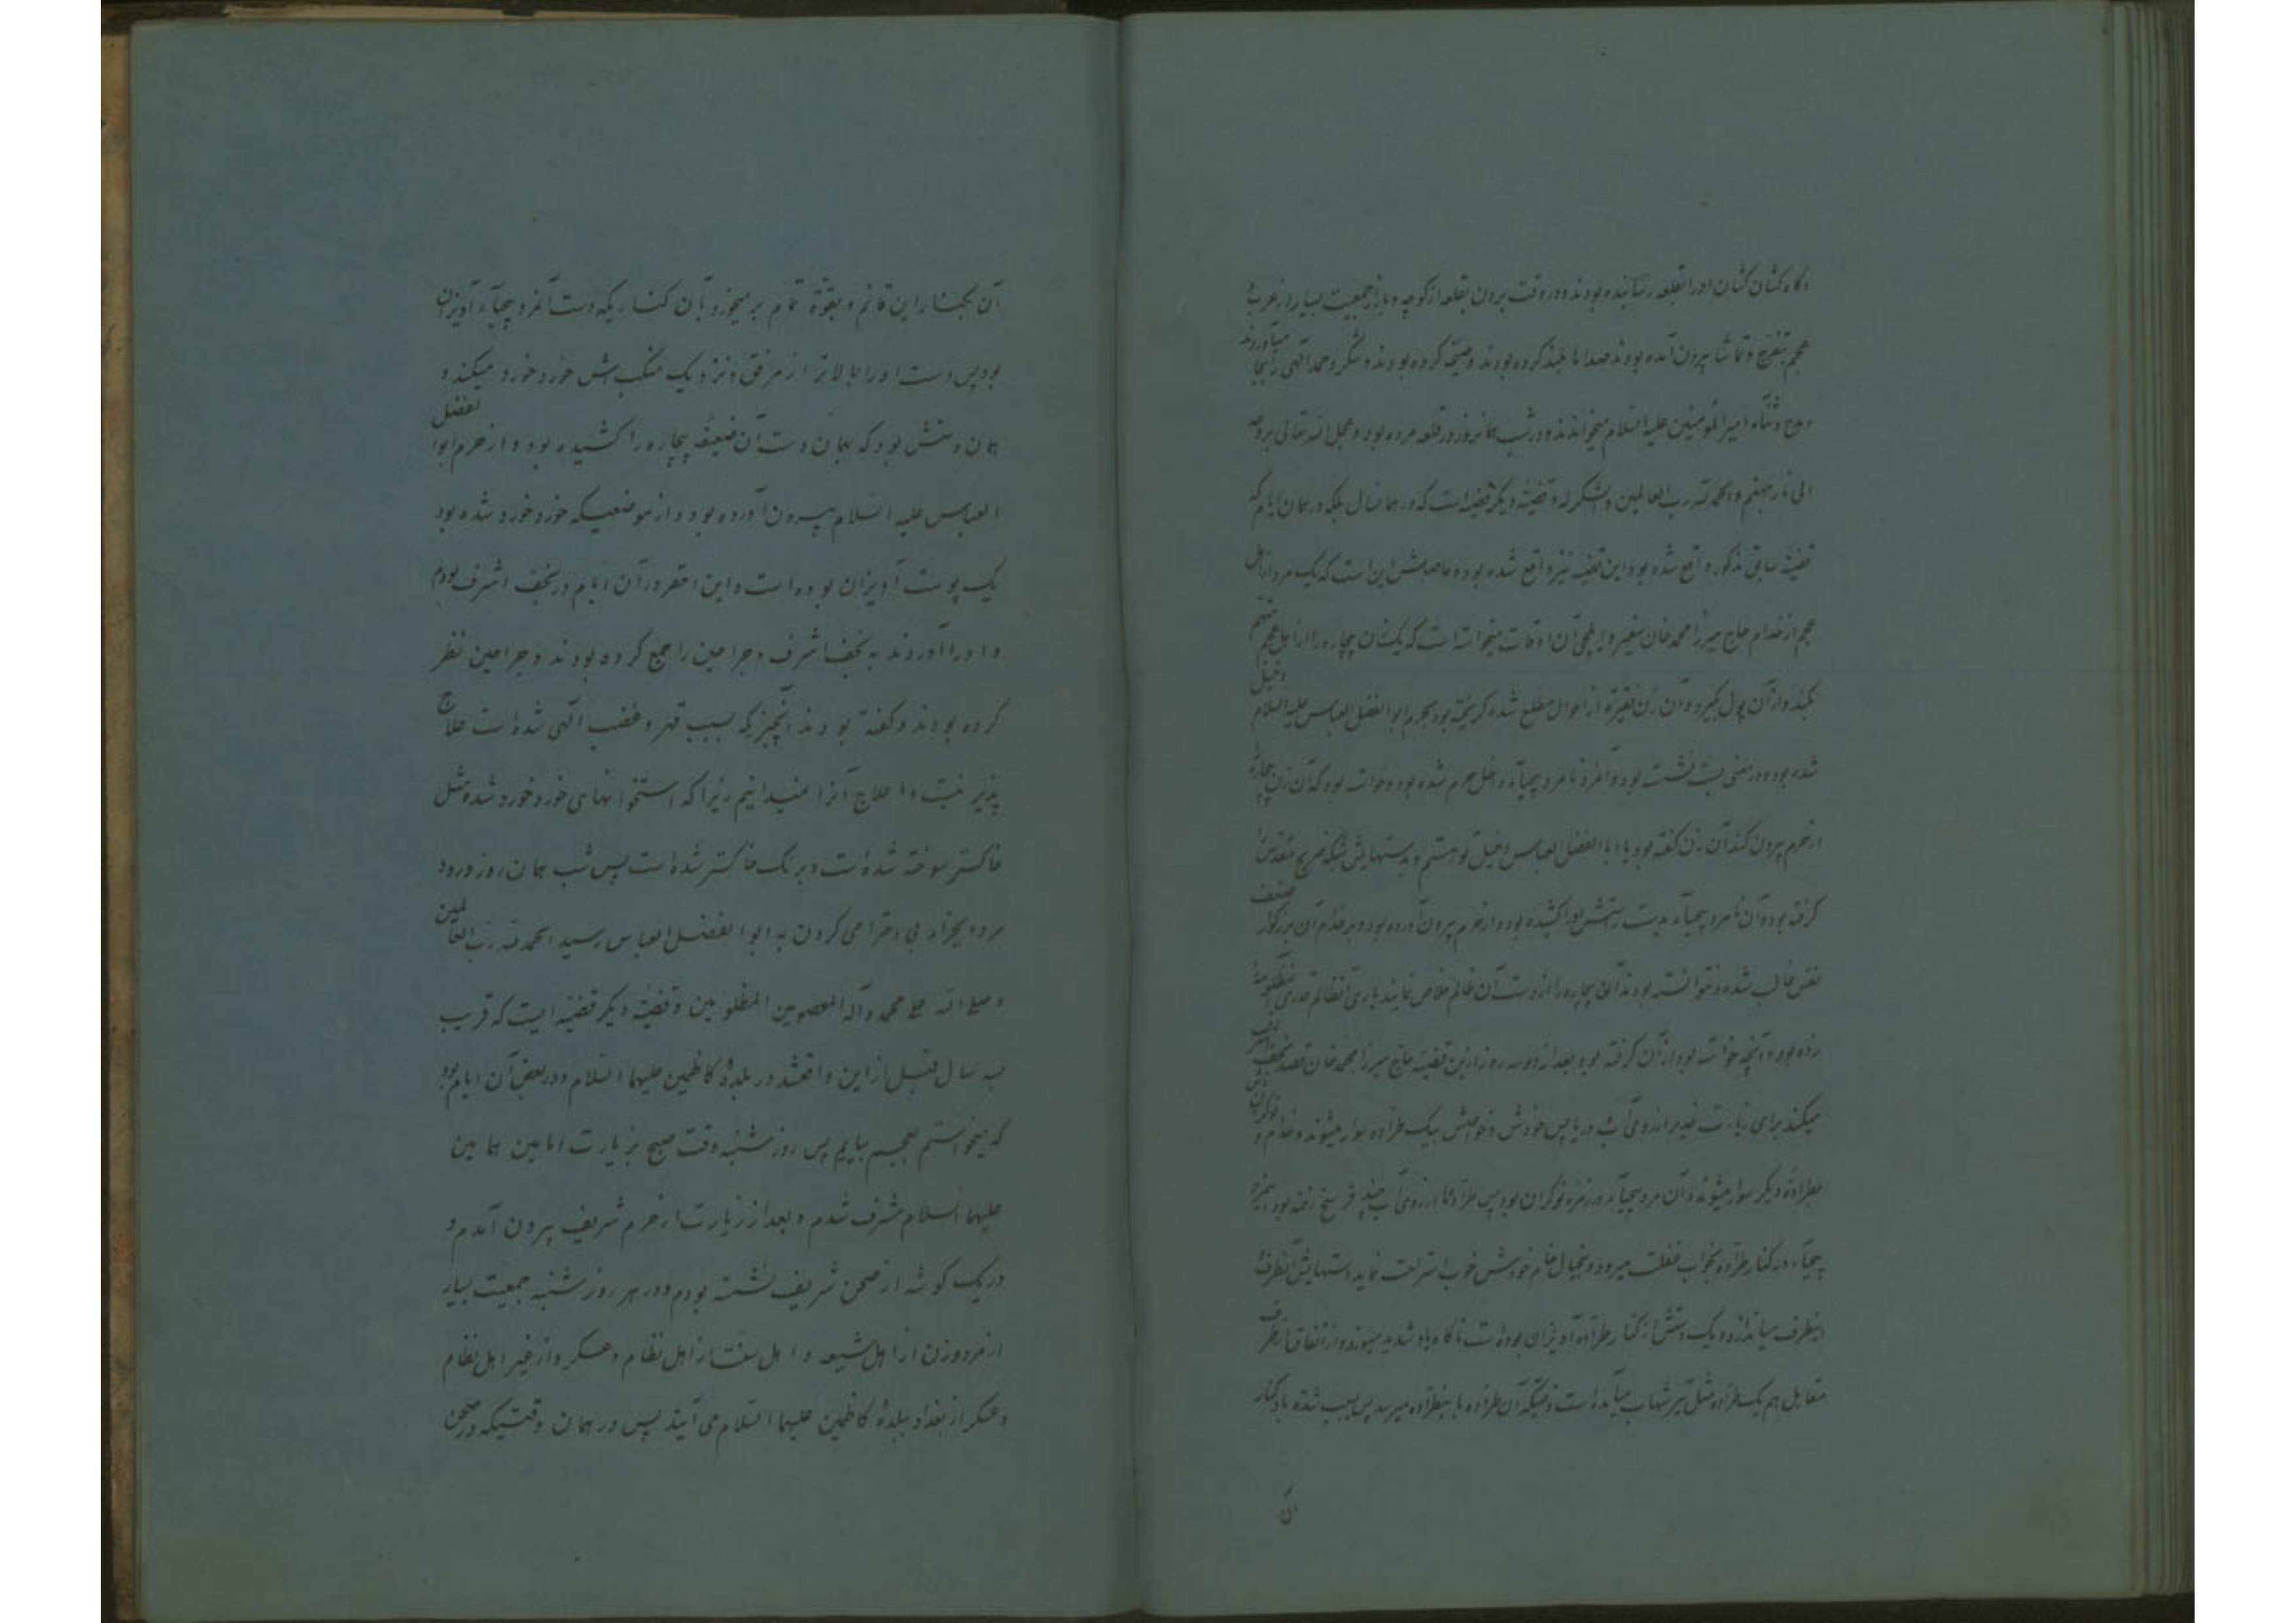 کاه کشان کشان او را بقلعه رسانیده بودند و در وقت بردن بقلعه از کوچه و بازار جمعیت بسیار از عرب و
عجم بتفرج و تماشا بیرون آمده بودند صداها بلند کرده بودند و صیحه کرده بودند و شکر و حمد الهی را بجا میآوردند
و مدح و ثناء امیر المؤمنین علیه السلام میخواندند و در شب همانروز در قلعه مرده بود و عجل الله تعالی بروحه
الی نار جهنم و الحمد لله رب العالمین و الشکر له و قضیه دیکر قضیه‌ است که در همانسال بلکه در همان ایام که
قضیه سابق مذکور واقع شده بود این قضیه نیز واقع شده بود و حاصلش این است که یک مرد از اهل
عجم از خدام حاج میرزا محمد خان سفیر و ایلچی آن اوقات میخواسته است که یک زن بیچاره را از اهل عجم متهم
بکند و از آن پول بکیرد و آن زن فقیره از احوال مطلع شده کریخته بود بحرم ابو الفضل العباس علیه السلام دخیل
شده بود و در معنی بست نشسته بود و آنمرد نامرد بیحیاء داخل حرم شده بود و خواسته بود که آن زن بیچاره را
از حرم بیرون کند آن زن کفته بود یا ابا الفضل العباس دخیل تو هستم و بدستهایش شبکه ضریح مقدس را
کرفته بود و آن نامرد بیحیاء بدست راستش او را کشیده بود و از حرم بیرون آورده بود و بر خدام آن بزرکوار ضعف
نفس غالب شده و نتوانسته بودند آن بیچاره را از دست آن ظالم خلاص نمایند باری آنظالم قدری آنمظلومه را
زده بود و آنچه خواسته بود از آن کرفته بود بعد از دو سه روز ازین قضیه حاج میرزا محمد خان قصد نجف اشرف
میکند برای زیارت غدیر از روی آب دریا پس خودش و خواصش بیک طراده سوار میشوند و خدام و نوکرانش
بطراده دیکر سوار میشوند و آن مرد بیحیاء در زمره نوکران بود پس طراده‌ها از روی آب چند فرسخ رفته بود آنمرد
بیحیاء در کنار طراده بخواب غفلت میرود و بخیال خام خودش خوب استراحت نماید دستهایش آنطرف و
اینطرف میاندازد و یک دستش از کنار طراده آویزان بوده است ناکاه باد شدید میوزد و از اتفاق از طرف
مقابل هم یک طراده مثل تیر شهاب میآمده است وقتیکه آن طراده با اینطراده میرسد پس بسبب شدة باد کنار
آن
آن بکنار این قائم و بقوة تمام بر میخورد بآن کناریکه دست آنمرد بیحیاء آویزان
بود پس دست او را تا بالاتر از مرفق و نزدیک منکب‌اش خورد خورد میکند و
همان دستش بود که بهمان دست آن ضعیفه بیچاره را کشیده بود و از حرم ابوا لفضل
العباس علیه السلام بیرون آورده بود و از موضعیکه خورد خورد شده بود
یک پوست آویزان بوده است و این احقر در آن ایام در نجف اشرف بودم
و او را آوردند به نجف اشرف و جراحین را جمع کرده بودند و جراحین نظر
کرده بودند و کفته بودند آنچیزیکه بسبب قهر و غضب الهی شده است علاج
پذیر نیست و ما علاج آنرا نمیدانیم زیرا که استخوانهای خورد خورد شده مثل
خاکستر سوخته شده است و برنک خاکستر شده است پس شب همان روز ورود
مرد و بجزاء بی احترامی کردن به ابو الفضل العباس رسید الحمد لله رب العالمین
و صلی الله علی محمد و آله المعصومین المظلومین و قضیه دیکر قضیه ایست که قریب
سه سال قبل از این واقعشد در بلدهٔ کاظمین علیهما السلام و در بعض آن ایام بود
که میخواستم بعجم بیایم پس روز شنبه وقت صبح بزیارت امامین همامین
علیهما السلام مشرف شدم و بعد از زیارت از حرم شریف بیرون آمدم و
در یک کوشه از صحن شریف نشسته بودم و در هر روز شنبه جمعیت بسیار
از مرد و زن از اهل شیعه و اهل سنت از اهل نظام و عسکر و از غیر اهل نظام
و عسکر از بغداد ببلدهٔ کاظمین علیهما السلام می آیند پس در همان وقتیکه در صحن